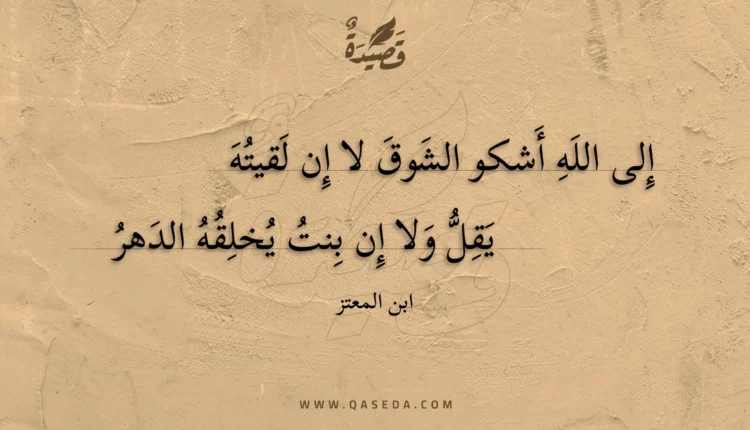 قَصِيدَةٌ
إِلى اللَهِ أَشكو الشَوقَ لا إِن لَقيتُهَ
يَقِلُّ وَلا إِن بِنتُ يُخلِقُهُ الدَهرُ
ابن المعتز
WWW.QASEDA.COM